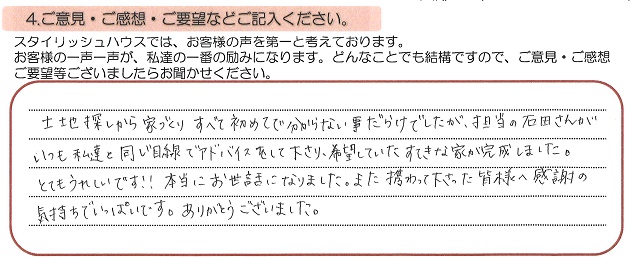 4.ご意見・ご感想・ご要望などご記入ください。
スタイリッシュハウスでは、お客様の声を第一と考えております。
お客様の一声一声が、私達の一番の励みになります。どんなことでも結構ですので、ご意見・ご感想
ご要望等ございましたらお聞かせください。
土地探しから家づくり すべて初めてで分からない事だらけでしたが、担当の石田さんが
いつも私達と同じ目線でアドバイスをして下さり、希望していたすてきな家が完成しました。
とてもうれしいです!! 本当にお世話になりました。また携わって下さった皆様へ感謝の
気持ちでいっぱいです。ありがとうございました。